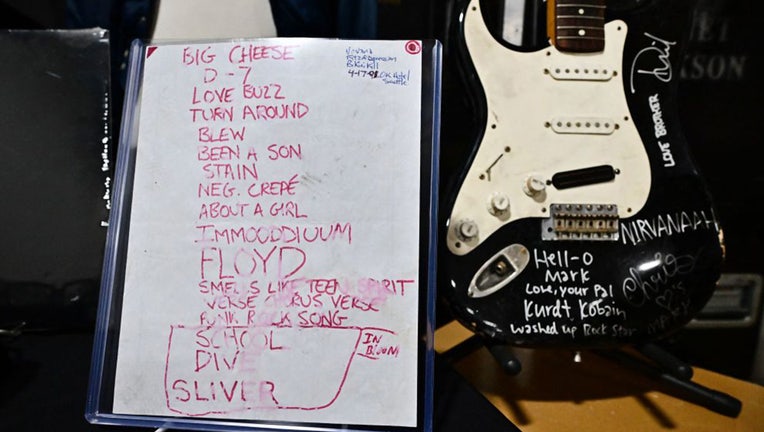 BIG CHEESE
D-7
LOVE BUZZ
TURN AROUND
BLEW
BEEN A SON
STAIN
NEG. CREPÉ
ABOUT A GIRL
IMMOODDIUUM
FLOYD
SMELLS LIKE TEEN SPIRIT
VERSE CHORUS VERSE
PUNK ROCK SONG
SCHOOL
DIVE
SLIVER
IN
BLOOM
Bikini Kill
4-17-91 OK Hotel
Seattle
LOVE
NIRVANAAH
Hell-O
Mark
Love, your Pal
Kurdt Kobain
washed up Rock Star